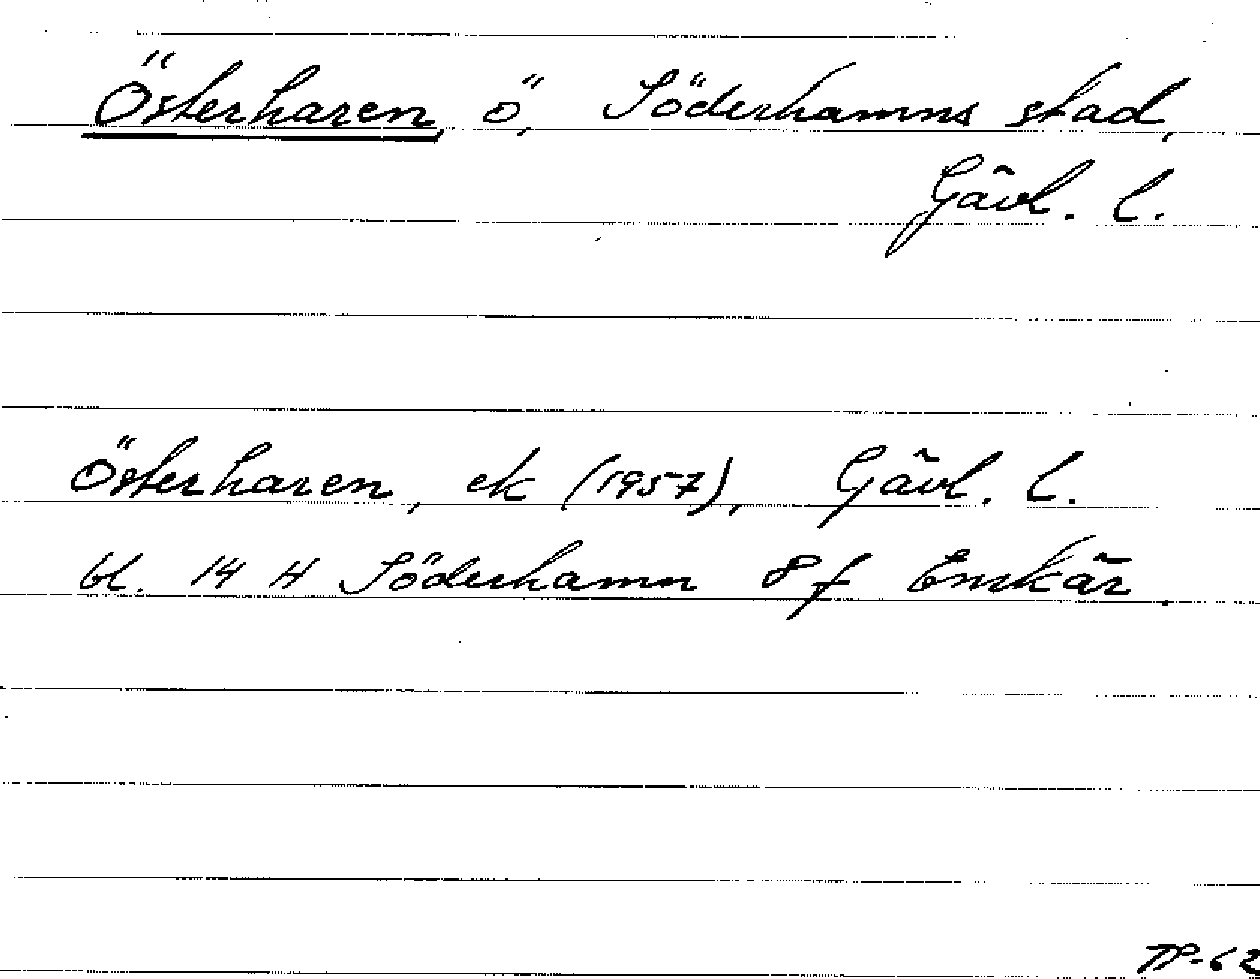 Österharen, ö, Söderhamns stad,
Gävl. l.
Österharen, ek (1957), Gävl. l.
bl. 14 H Söderhamn 8 f Enskär.
TP-62